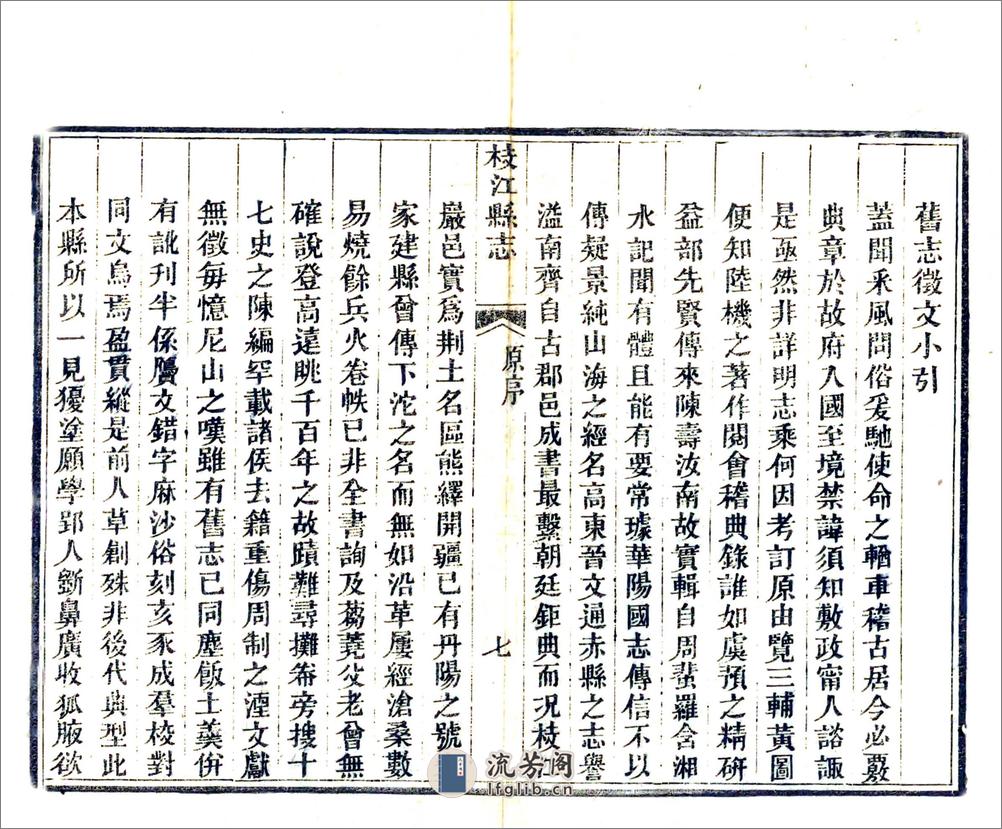 舊志徵文小引
蓋聞采風問俗爰馳使命之輶車稽古居今必覈
典章於故府入國至境禁諱須知敷政甯人諮諏
是亟然非詳明志乘何因考訂原由覽三輔黃圖
便知陸機之著作閱會稽典錄誰如虞預之精研
益部先賢傳來陳壽汝南故實輯自周蜚羅含湘
水記聞有體且能有要常璩華陽國志傳信不以
傳疑景純山海之經名高東晉文通赤縣之志譽
溢南齊自古郡邑成書最繫朝廷鉅典而况枝江
枝江縣志
原序
七
巖邑實爲荆土名區熊繹開疆已有丹陽之號
家建縣曾傳下沱之名而無如沿革屢經滄桑數
易燒餘兵火卷帙已非全書詢及蒭蕘父老曾無
確說登高遠眺千百年之故蹟難尋攤帣旁搜十
七史之陳編罕載諸侯去籍重傷周制之湮文獻
無徵毎憶尼山之嘆雖有舊志已同塵飯土羹倂
有訛刊半係贋文錯字麻沙俗刻亥豕成羣校對
同文烏焉盈貫縱是前人草創殊非後代典型此
本縣所以一見獶塗願學郢人斵鼻廣收狐腋欲
流芳阁
lfglib.cn